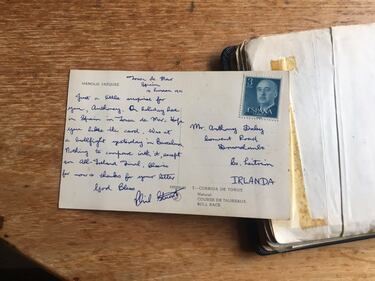 MANOLO VAZQUEZ
Spain
Just a little surprise for
you, Anthony. On holiday here
in Spain in Tossa de Mar. Hope
you like the card. Was at
a bullfight yesterday in Barcelona.
Nothing to compare with it, except
an All-Ireland Final. Cheers
for now & thanks for your letter
God Bless
Phil
ESPAÑA
Mr. Anthony
Convent Road
Co. Leitrim
IRLANDA
CORRIDA DE TOROS
Natural
COURSE DE TAUREAUX
BULL RACE